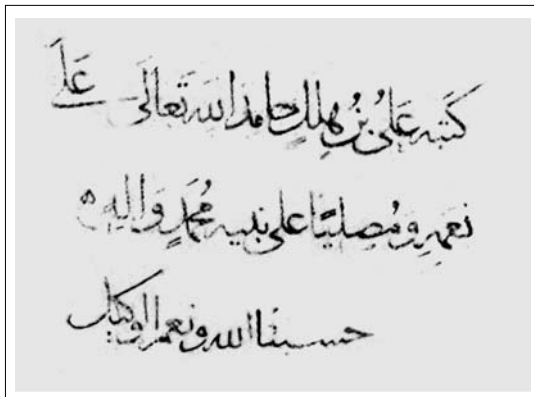 كَتَبَه عَلِيُّ بْنُ هِلَالٍ حَامِدًا لِلّٰهِ تَعَالَى عَلَى
نِعَمِهِ وَمُصَلِّيًا عَلَى نَبِيِّهِ مُحَمَّدٍ وَآلِهِ
حسبنا الله ونعم الوكيل